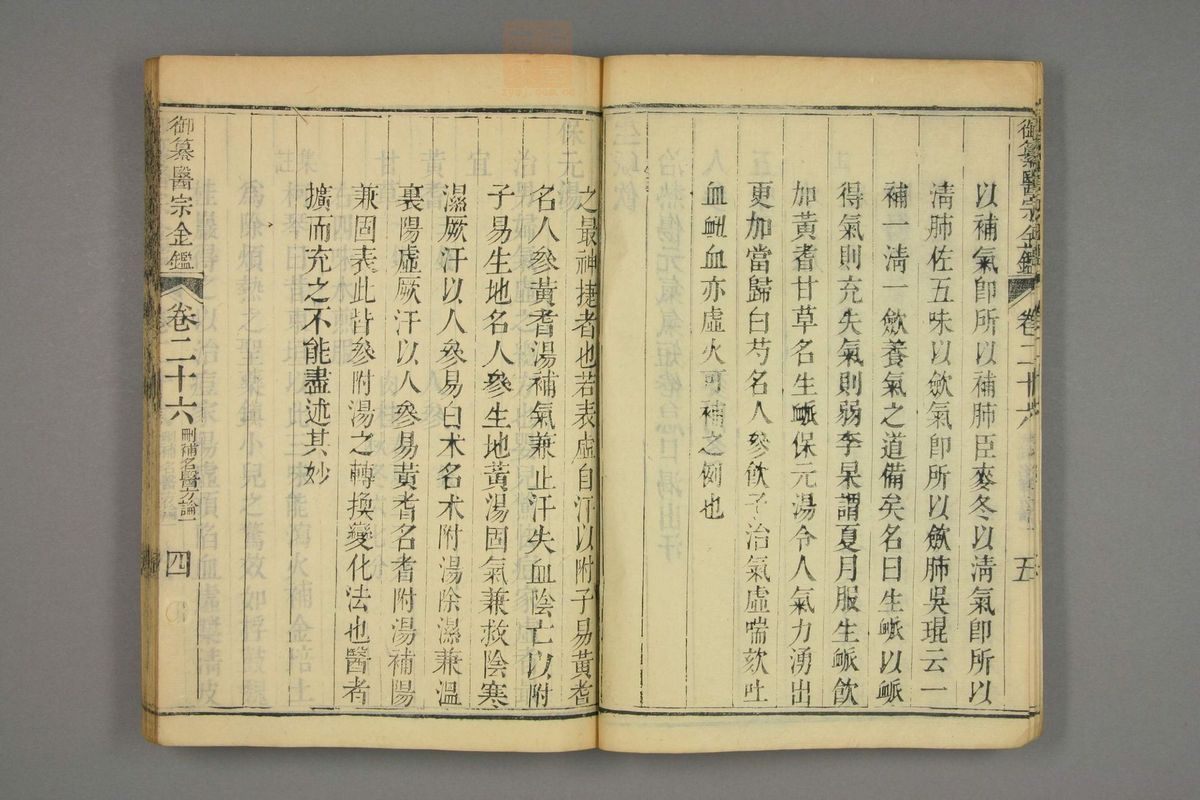 御纂醫宗金鑑 卷二十六 五
以補氣卽所以補肺臣麥冬以淸氣卽所以
淸肺佐五味以斂氣卽所以斂肺吳琨云一
補一淸一斂養氣之道備矣名曰生脈以脈
得氣則充失氣則弱李杲謂夏月服生脈飮
加黃耆甘草名生脈保元湯令人氣力湧出
更加當歸白芍名人參飮子治氣虛喘欬吐
血衂血亦虛火可補之例也
之最神捷者也若表虛自汗以附子易黃耆
名人參黃耆湯補氣兼止汗失血陰亡以附
子易生地名人參生地黃湯固氣兼救陰寒
濕厥汗以人參易白术名术附湯除濕兼溫
裏陽虛厥汗以人參易黃耆名耆附湯補陽
兼固表此皆參附湯之轉換變化法也醫者
擴而充之不能盡述其妙
御纂醫宗金鑑 卷二十六 刪補名醫方論一 四